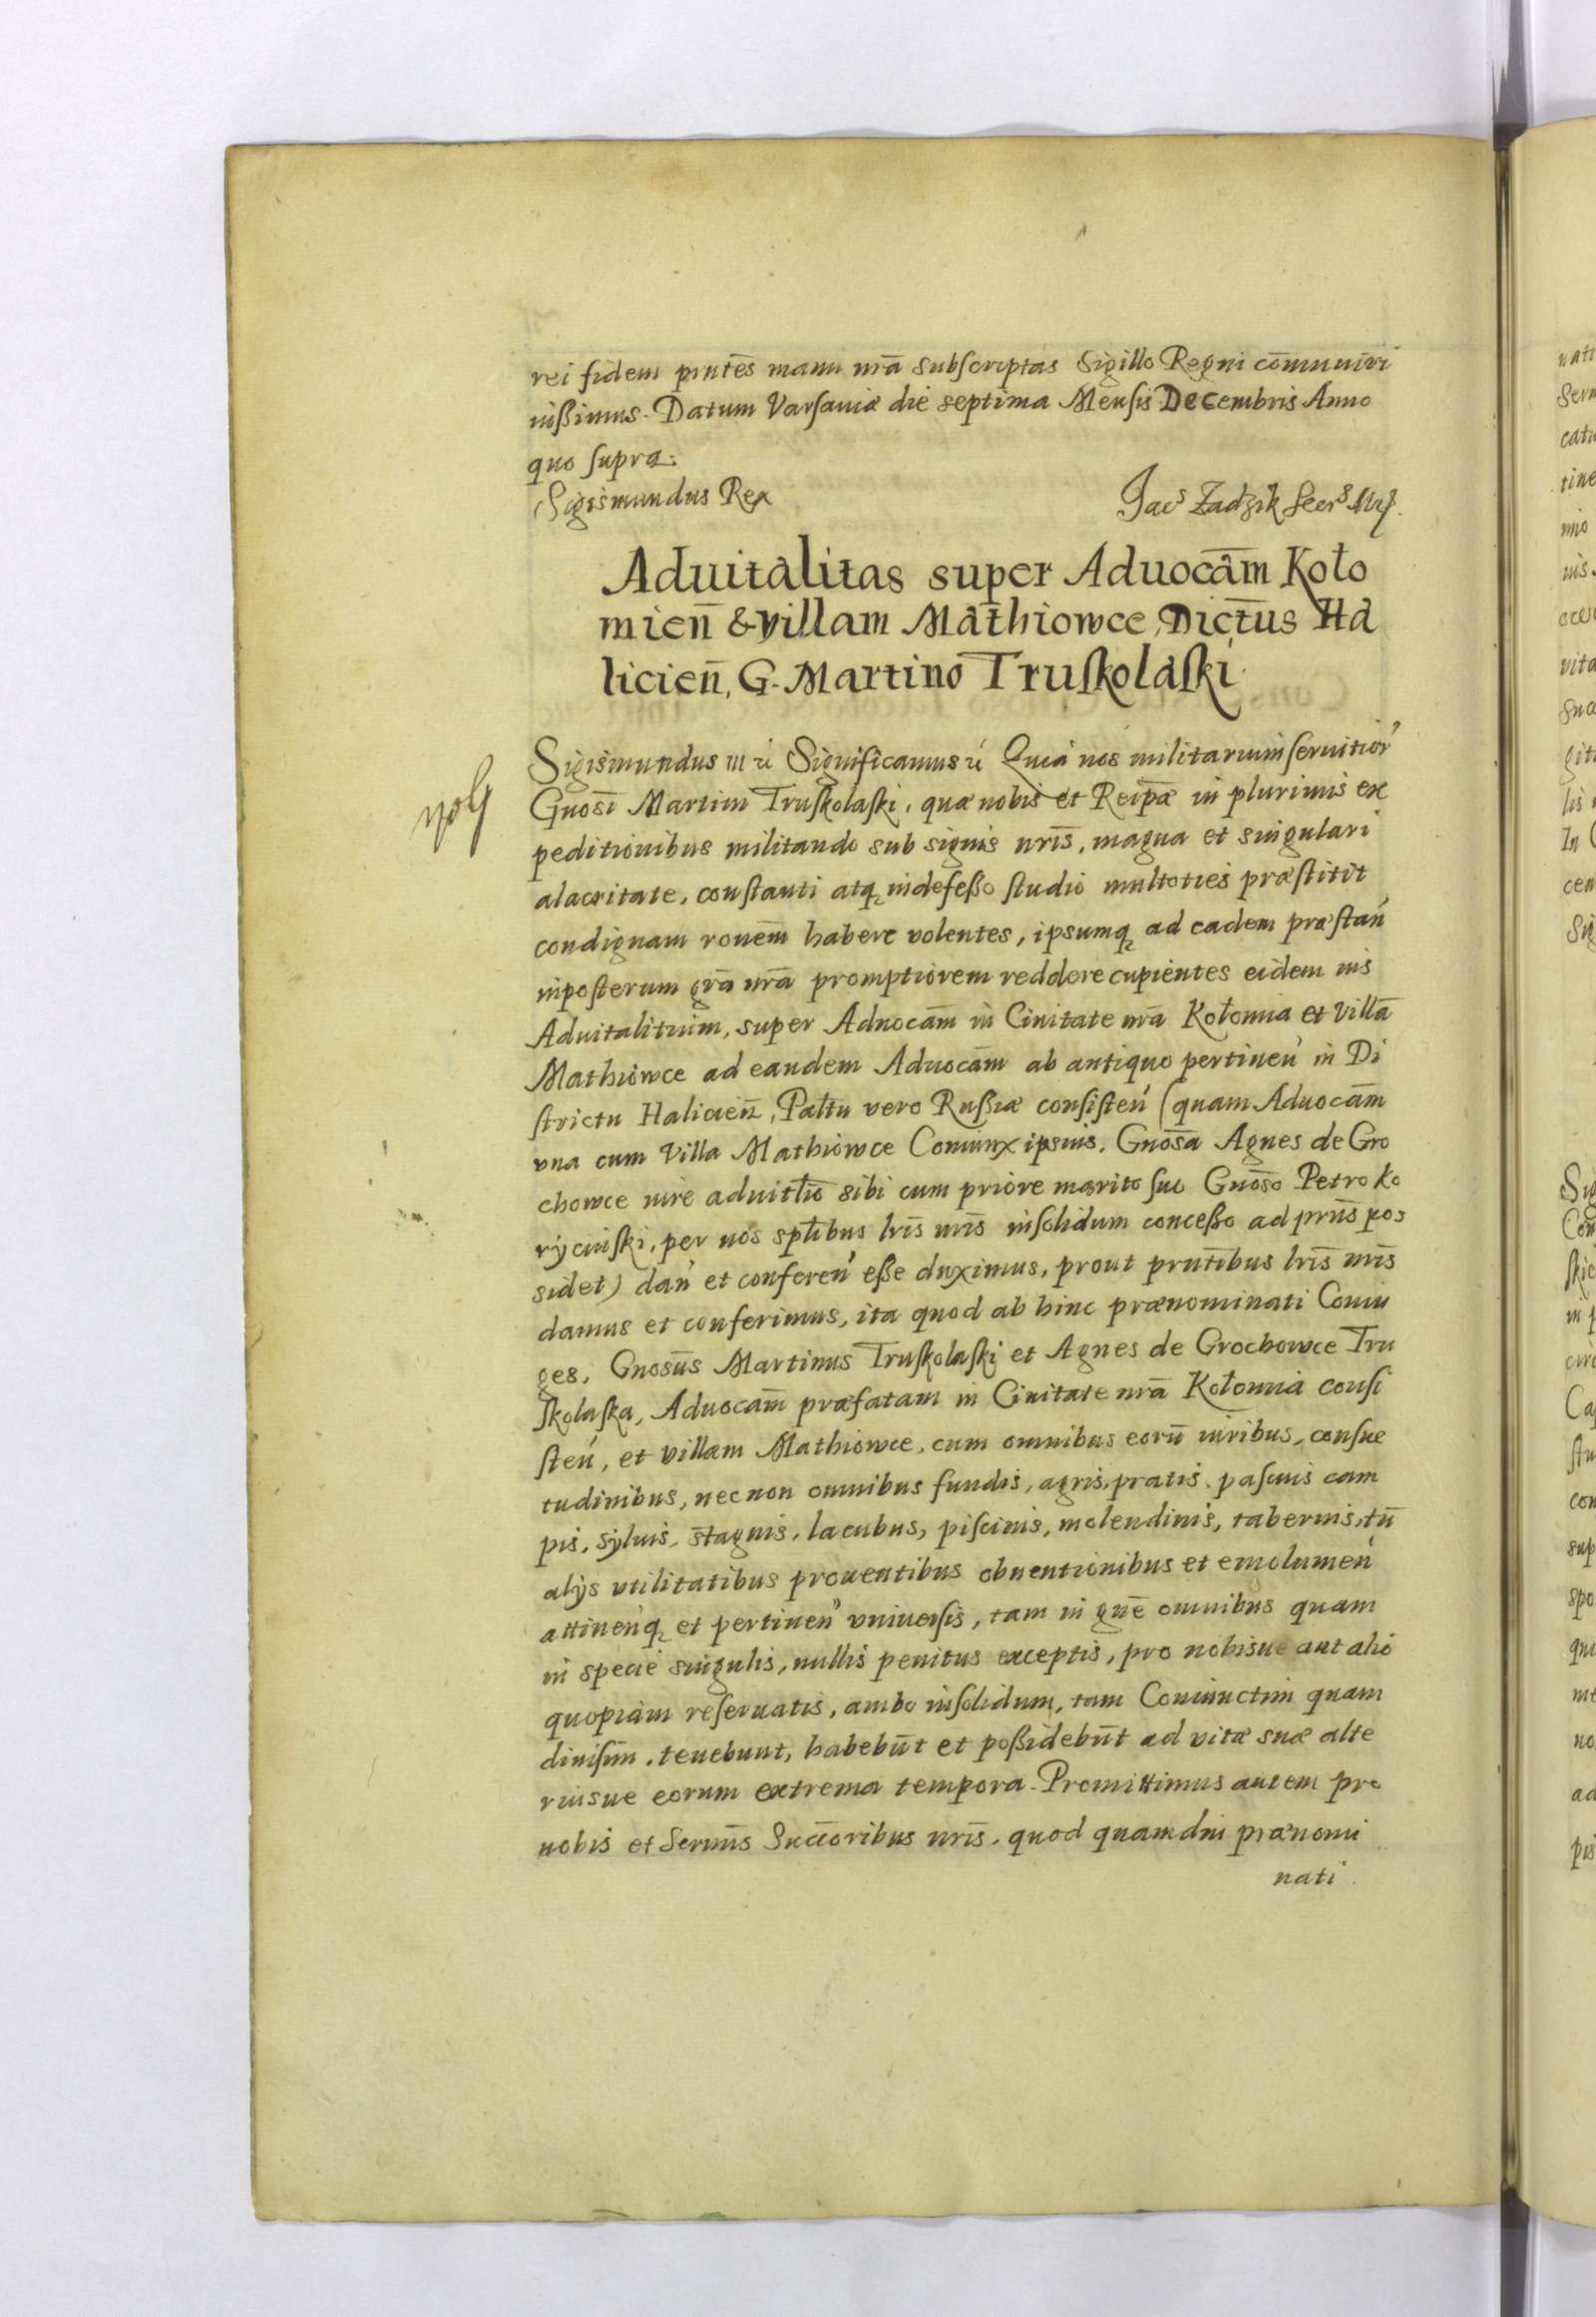 rei fidem pñtes manu nrã subscriptas Sigillo Regni cõmuniri
iussimus. Datum Varsauiæ die septima Mensis Decembris Anno
quo supra.
Sigismundus Rex
Jacs Zadzik Secrs
Aduitalitas super Aduocãm Koło
mieñ & villam Mathiowce, Dictus Ha
licieñ, G. Martino Truskolaski.
Sigismundus III Significamus Quia nos militarium seruitior
Gnosi Martini Truskolaski, quæ nobis et Reipæ in plurimis ex
peditionibus militando sub signis nrĩs, magna et singulari
alacritate, constanti atq indefesso studio multoties præstitit
condignam ronem habere volentes, ipsumq ad eadem præstan
inposterum grã nrã promptiorem reddere cupientes eidem ius
Aduitalitium, super Aduocãm in Ciuitate nrã Kołomia et villã
Mathiowce ad eandem Aduocãm ab antiquo pertinen in Di
strictu Halicieñ, Paltu vero Russiæ consisten (quam Aduocãm
vna cum Villa Mathiowce Coniunx ipsius, Gnosa Agnes de Gro
chowce iure aduitlio sibi cum priore marito suo Gnoso Petro Ko
rycinski, per nos spłibus lrĩs nrĩs insolidum concesso ad prñs pos
sidet) dan et conferen esse duximus, prout pntibus lrĩs nrĩs
damus et conferimus, ita quod ab hinc prænominati Coniu
ges, Gnosus Martinus Truskolaski et Agnes de Grochowce Tru
skolaska, Aduocãm præfatam in Ciuitate nrã Kołomia consi
sten, et villam Mathiowce, cum omnibus eorũ iuribus, consue
tudinibus, necnon omnibus fundis, agris, pratis, pascuis cam
pis, syluis, stagnis, lacubus, piscinis, molendinis, tabernis, tũ
alijs vtilitatibus prouentibus obuentionibus et emolumen
attinenq et pertinen vniuersis, tam in gñe omnibus quam
in specie singulis, nullis penitus exceptis, pro nobisue aut alio
quopiam reseruatis, ambo insolidum, tam Coniunctim quam
diuisim, tenebunt, habebũt et possidebũt ad vitæ suæ alte
riusue eorum extrema tempora. Promittimus autem pro
nobis et Sermis Succoribus nrĩs, quod quamdiu prænomi
nati